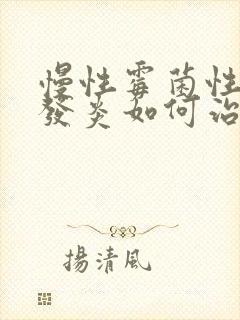 慢性霉菌性
發炎如何治
揚清風